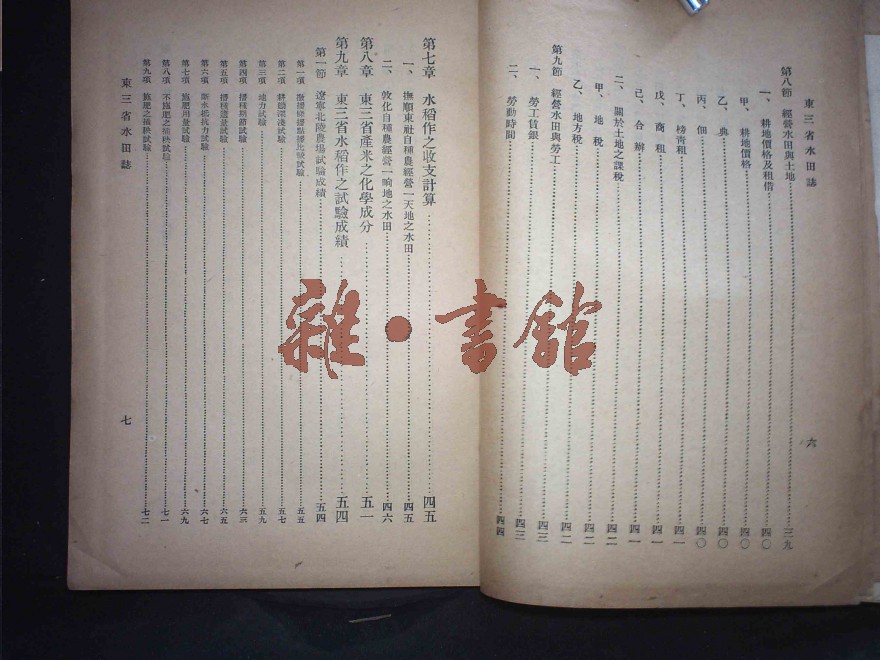 東三省水田誌
第八節 經營水田與土地……三九
一、耕地價格及租借……四〇
甲、耕地價格……四〇
乙、典……四〇
丙、佃……四〇
丁、榜青租……四一
戊、商租……四一
己、合辦……四一
二、關於土地之課稅……四二
甲、地稅……四二
乙、地方稅……四二
第九節 經營水田與勞工……四三
一、勞工賃銀……四三
二、勞動時間……四四
六
第七章 水稻作之收支計算……四五
一、撫順東社自種農經營一天地之水田……四五
二、敦化自種農經營一晌地之水田……四六
第八章 東三省產米之化學成分……五一
第九章 東三省水稻作之試驗成績……五四
第一節 遼寧北陵農場試驗成績……五四
第一項 撒播條播點播比較試驗……五五
第二項 耕鋤深淺試驗……五七
第三項 地力試驗……五九
第四項 播種期節試驗……六三
第五項 播種適量試驗……六五
第六項 斷水抵抗力試驗……六七
第七項 施肥用量試驗……六九
第八項 不施肥之插秧試驗……七一
第九項 施肥之插秧試驗……七二
東三省水田誌
七
雜·書館